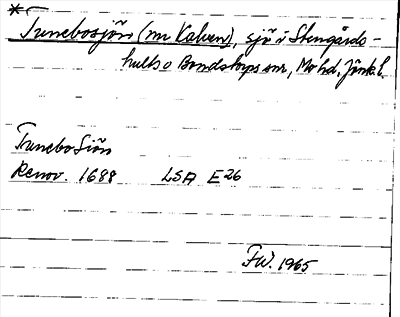 * Trunebosjön (nu Kalven), sjö i Stengårds-
hults o Bondstorps snr, Mo hd, Jönk. l.
Trunebo Siön
Renov. 1688 LSA E26
FW. 1965